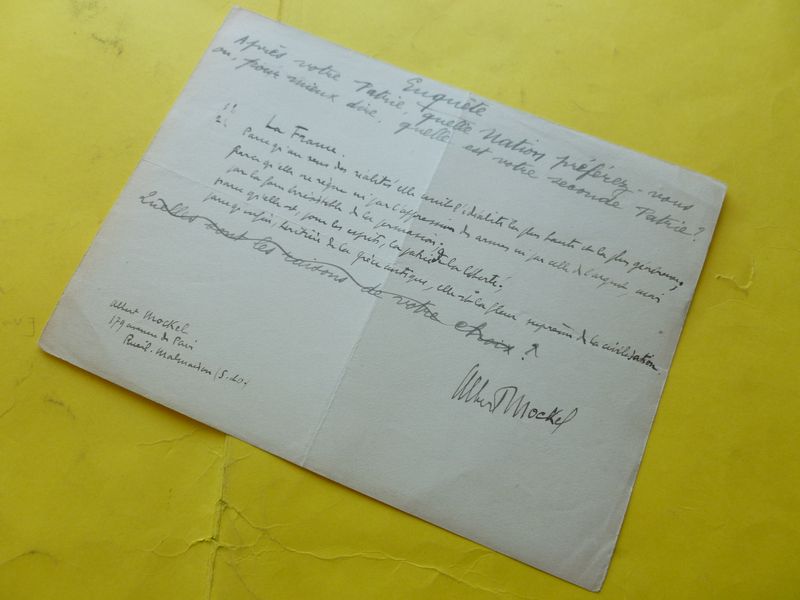 Enquête
Après votre Patrie, quelle Nation préférez-vous
ou, pour mieux dire, quelle est votre seconde Patrie?
1° La France.
2° Parce qu'au sens des réalités elle unit l'idéalité la plus haute et la plus généreuse;
parce qu'elle ne règne ni par l'oppression des armes ni par celle de l'argent, mais
par la force irrésistible de la persuasion;
parce qu'elle est, pour les esprits, la patrie de la liberté;
parce qu'enfin, héritière de la grèce antique, elle est la fleur suprême de la civilisation.
Quelles sont les raisons de votre choix?
Albert Mockel
Albert Mockel
179 avenue de Paris
Rueil-Malmaison (S.&O.)